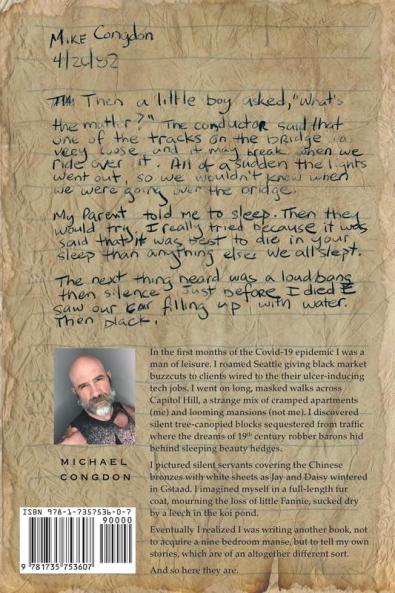 Mike Congdon
4/26/82
Then a little boy asked, "What's
the matter?" The conductor said that
one of the tracks on the bridge is
very loose and it may break when we
ride over it. All of a sudden the lights
went out, so we wouldn't know when
we were going over the bridge.
My Parent told me to sleep. Then they
would try. I really tried because it was
said that it was best to die in your
sleep than anything else. We all slept.
The next thing heard was a loud bang
then silence. Just before I died I
saw our car filling up with water.
Then black.
In the first months of the Covid-19 epidemic I was
a man of leisure. I roamed Seattle giving black market
buzzcuts to clients wired to the their ulcer-inducing
tech jobs. I went on long, masked walks across
Capitol Hill, a strange mix of cramped apartments
(me) and looming mansions (not me). I discovered
silent tree-canopied blocks sequestered from traffic
where the dreams of 19th century robber barons hid
behind sleeping beauty hedges.
I pictured silent servants covering the Chinese
bronzes with white sheets as Jay and Daisy wintered
in Gstaad. I imagined myself in a full-length fur
coat, mourning the loss of little Fannie, sucked dry
by a leech in the koi pond.
Eventually I realized I was writing another book, not
to acquire a nine bedroom manse, but to tell my own
stories, which are of an altogether different sort.
And so here they are.
MICHAEL
CONGDON
ISBN 978-1-7357536-0-7
90000
9 781735 753607